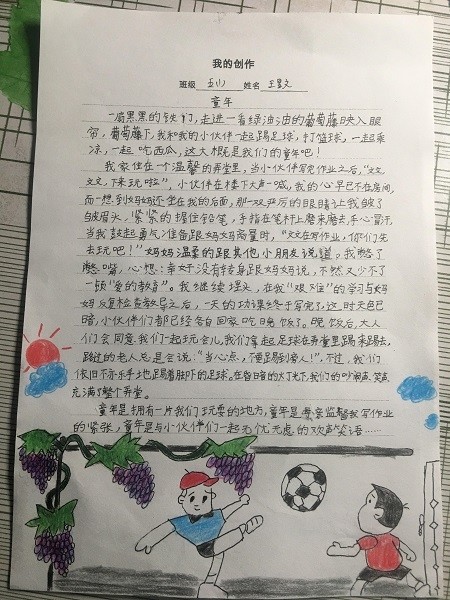 我的创作
班级 五(1) 姓名 王昱文
童年
一扇黑黑的铁门,走进一看绿油油的葡萄藤映入眼
帘,葡萄藤下,我和我的小伙伴一起踢足球,打篮球,一起乘
凉,一起吃西瓜,这大概是我们的童年吧!
我家住在一个温馨的弄堂里,当小伙伴写完作业之后,“文文
文文,下来玩啦”,小伙伴在楼下大声一喊,我的心早已不在房间,
而一想到妈妈还坐在我的后面,那一双严厉的眼睛让我皱了
皱眉头,紧紧的握住铅笔,手指在笔杆上磨来磨去,手心冒汗,
当我鼓起勇气准备跟妈妈商量时,“文文在写作业,你们先
去玩吧!”妈妈温柔的跟其他小朋友说道。我憋了
憋嘴,心想:幸好没有转身跟妈妈说,不然又少不了
一顿“爱的教育”。我继续埋头,在我“艰难”的学习与妈
妈反复检查教导之后,一天的功课终于写完了,这时天色已
暗,小伙伴们都已经各自回家吃晚饭了。晚饭后,大人
们会同意我们一起玩会儿,我们拿起足球在弄堂里踢来踢去,
路过的老人总是会说:“当心点,不要踢到旁人!”,不过,我们
依旧不亦乐乎地踢着脚下的足球。在昏暗的灯光下,我们的吵闹声、笑声
充满了整个弄堂。
童年是拥有一片我们玩耍的地方,童年是母亲监督我写作业
的紧张,童年是与小伙伴们一起无忧无虑的欢声笑语……